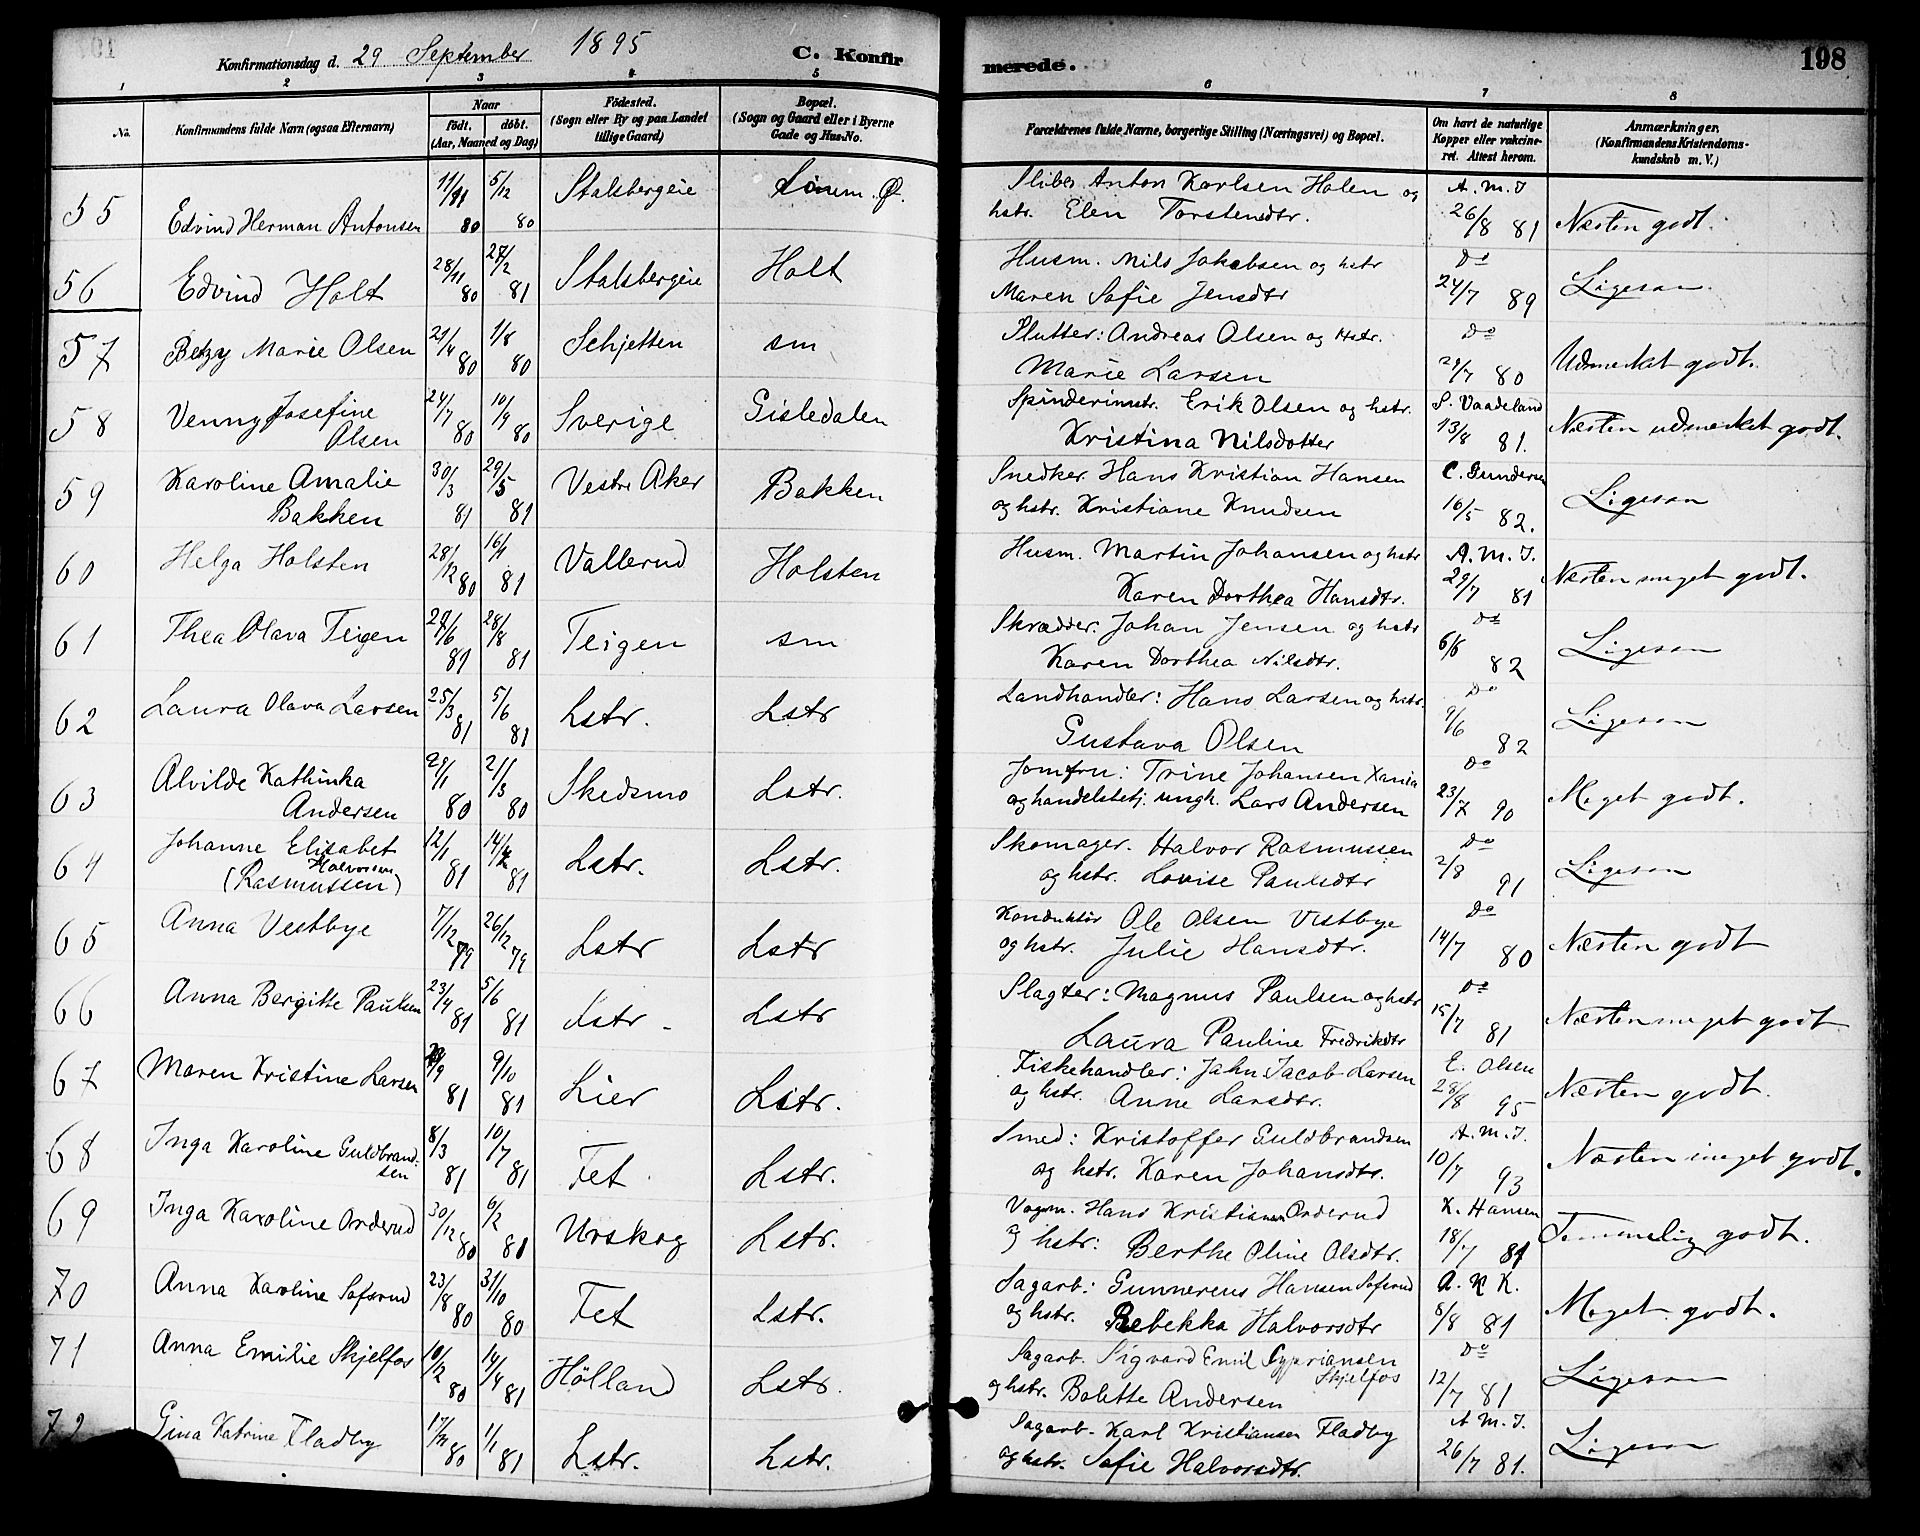 Konfirmationsdag d. 29 September 1895 C. Konfirmerede. 198
1 2 3 4 5 6 7 8
No. Konfirmandens fulde Navn (ogsaa Efternavn) Naar født. døbt. (Aar, Maaned og Dag) Fødested. (Sogn eller By og paa Landet tillige Gaard) Bopæl. (Sogn og Gaard eller i Byerne Gade og Hus-No. Forældrenes fulde Navne, borgerlige Stilling (Næringsvei) og Bopæl. Om havt de naturlige Kopper eller vakcineret. Attest herom. Anmærkninger. (Konfirmandens Kristendomskundskab m. V.)
55 Edvind Herman Antonsen 11/11 80 5/12 80 Stalsbergeie Anton Karlsen Holen og hstr. Elen Torstensdtr. A. M. J. 26/8 81 Næsten godt.
56 Edvind Holt 28/11 80 27/2 81 Stalsbergeie Holt Husm. Nils Jakobsen og hstr Maren Sofie Jensdtr Do 24/7 89 Ligesaa
57 Betzy Marie Olsen 21/4 80 1/8 80 Schjetten sm Slutter: Andreas Olsen og Hstr. Marie Larsen Do 29/7 80 Udmerket godt.
58 Venny Josefine Olsen 24/7 80 10/9 80 Sverige Gisledalen Spinderimstr. Erik Olsen og hstr. Kristina Nilsdotter S. Vaadeland 13/8 81. Næsten udmerket godt.
59 Karoline Amalie Bakken 30/3 81 29/5 81 Vestre Aker Bakken Snedker Hans Kristian Hansen og hstr. Kristiane Knudsen C. Gundersen 16/5 82. Ligesaa
60 Helga Holsten 28/12 80 16/1 81 Vallerud Holsten Husm. Martin Johansen og hstr Karen Dorthea Hansdtr. A. M. J. 29/7 81 Næsten meget godt.
61 Thea Olava Teigen 29/6 81 28/8 81 Teigen sm Skrædder. Johan Jensen og hstr Karen Dorthea Nilsdtr. Do 6/6 82 Ligesaa
62 Laura Olava Larsen 25/3 81 5/6 81 Lstr. Lstr Landhandler: Hans Larsen og hstr. Gustava Olsen Do 9/6 82 Ligesaa
63 Alvilde Kathinka Andersen 29/1 80 21/3 80 Skedsmo Lstr. Jomfru: Trine Johansen Xania og handelsbetj. ungk. Lars Andersen Do 23/7 90 Meget godt.
64 Johanne Elisabet Halvorsen (Rasmussen) 12/1 81 14/4 81 Lstr. Lstr. Skomager. Halvor Rasmussen og hstr. Lovise Paulsdtr Do 2/8 91 Ligesaa
65 Anna Vestbye 7/12 79 26/12 79 Lstr Lstr Konduktør Ole Olsen Vestbye og hstr. Julie Hansdtr. Do 14/7 80 Næsten godt
66 Anna Bergitte Paulsen 23/4 81 5/6 81 Lstr. Lstr Slagter: Magnus Paulsen og hstr Laura Pauline Fredriksdtr Do 15/7 81 Næsten meget godt
67 Maren Kristine Larsen /9 81 9/10 81 Lier Lstr. Fiskehandler: Jahn Jacob Larsen og hstr. Anne Larsdtr. E. Olsen 28/8 95 Næsten godt.
68 Inga Karoline Guldbrandsen 8/3 81 10/7 81 Fet Lstr. Smed: Kristoffer Guldbrandsen og hstr. Karen Johansdtr. A. M. J. 10/7 93 Næsten meget godt.
69 Inga Karoline Orderud 30/12 80 6/2 81 Urskog Lstr. Vogm. Hans Kristiansen Orderud og hstr: Berthe Oline Olsdtr. K. Hansen 18/7 81 Temmelig godt.
70 Anna Karoline Sofsrud 23/8 80 31/10 80 Fet Lstr. Sagarb: Gunnereus Hansen Sofsrud og hstr. Rebekka Halvorsdtr A. K K. 8/8 81 Meget godt.
71 Anna Emilie Skjelfos 10/12 80 14/4 81 Hølland Lstr. Sagarb. Sigvard Emil Cypriansen Skjelfos og hstr. Bolette Andersen Do 12/7 81 Ligesaa
72 Gina Katrine Fladby 17/11 80 1/1 81 Lstr. Lstr. Sagarb. Karl Kristiansen Fladby og hstr. Sofie Halvorsdtr. A M. J. 26/7 81. Ligesaa